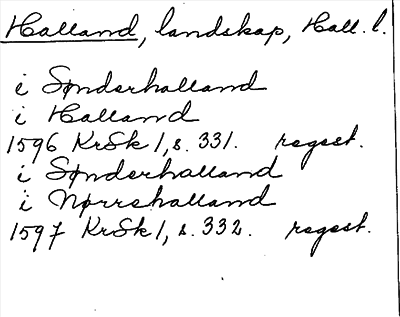 Halland, landskap, Hall. l.
i Sønderhalland
i Halland
1596 KrSk 1, s. 331. regest.
i Sønderhalland
i Nørrehalland
1597 KrSk 1, s. 332. regest.